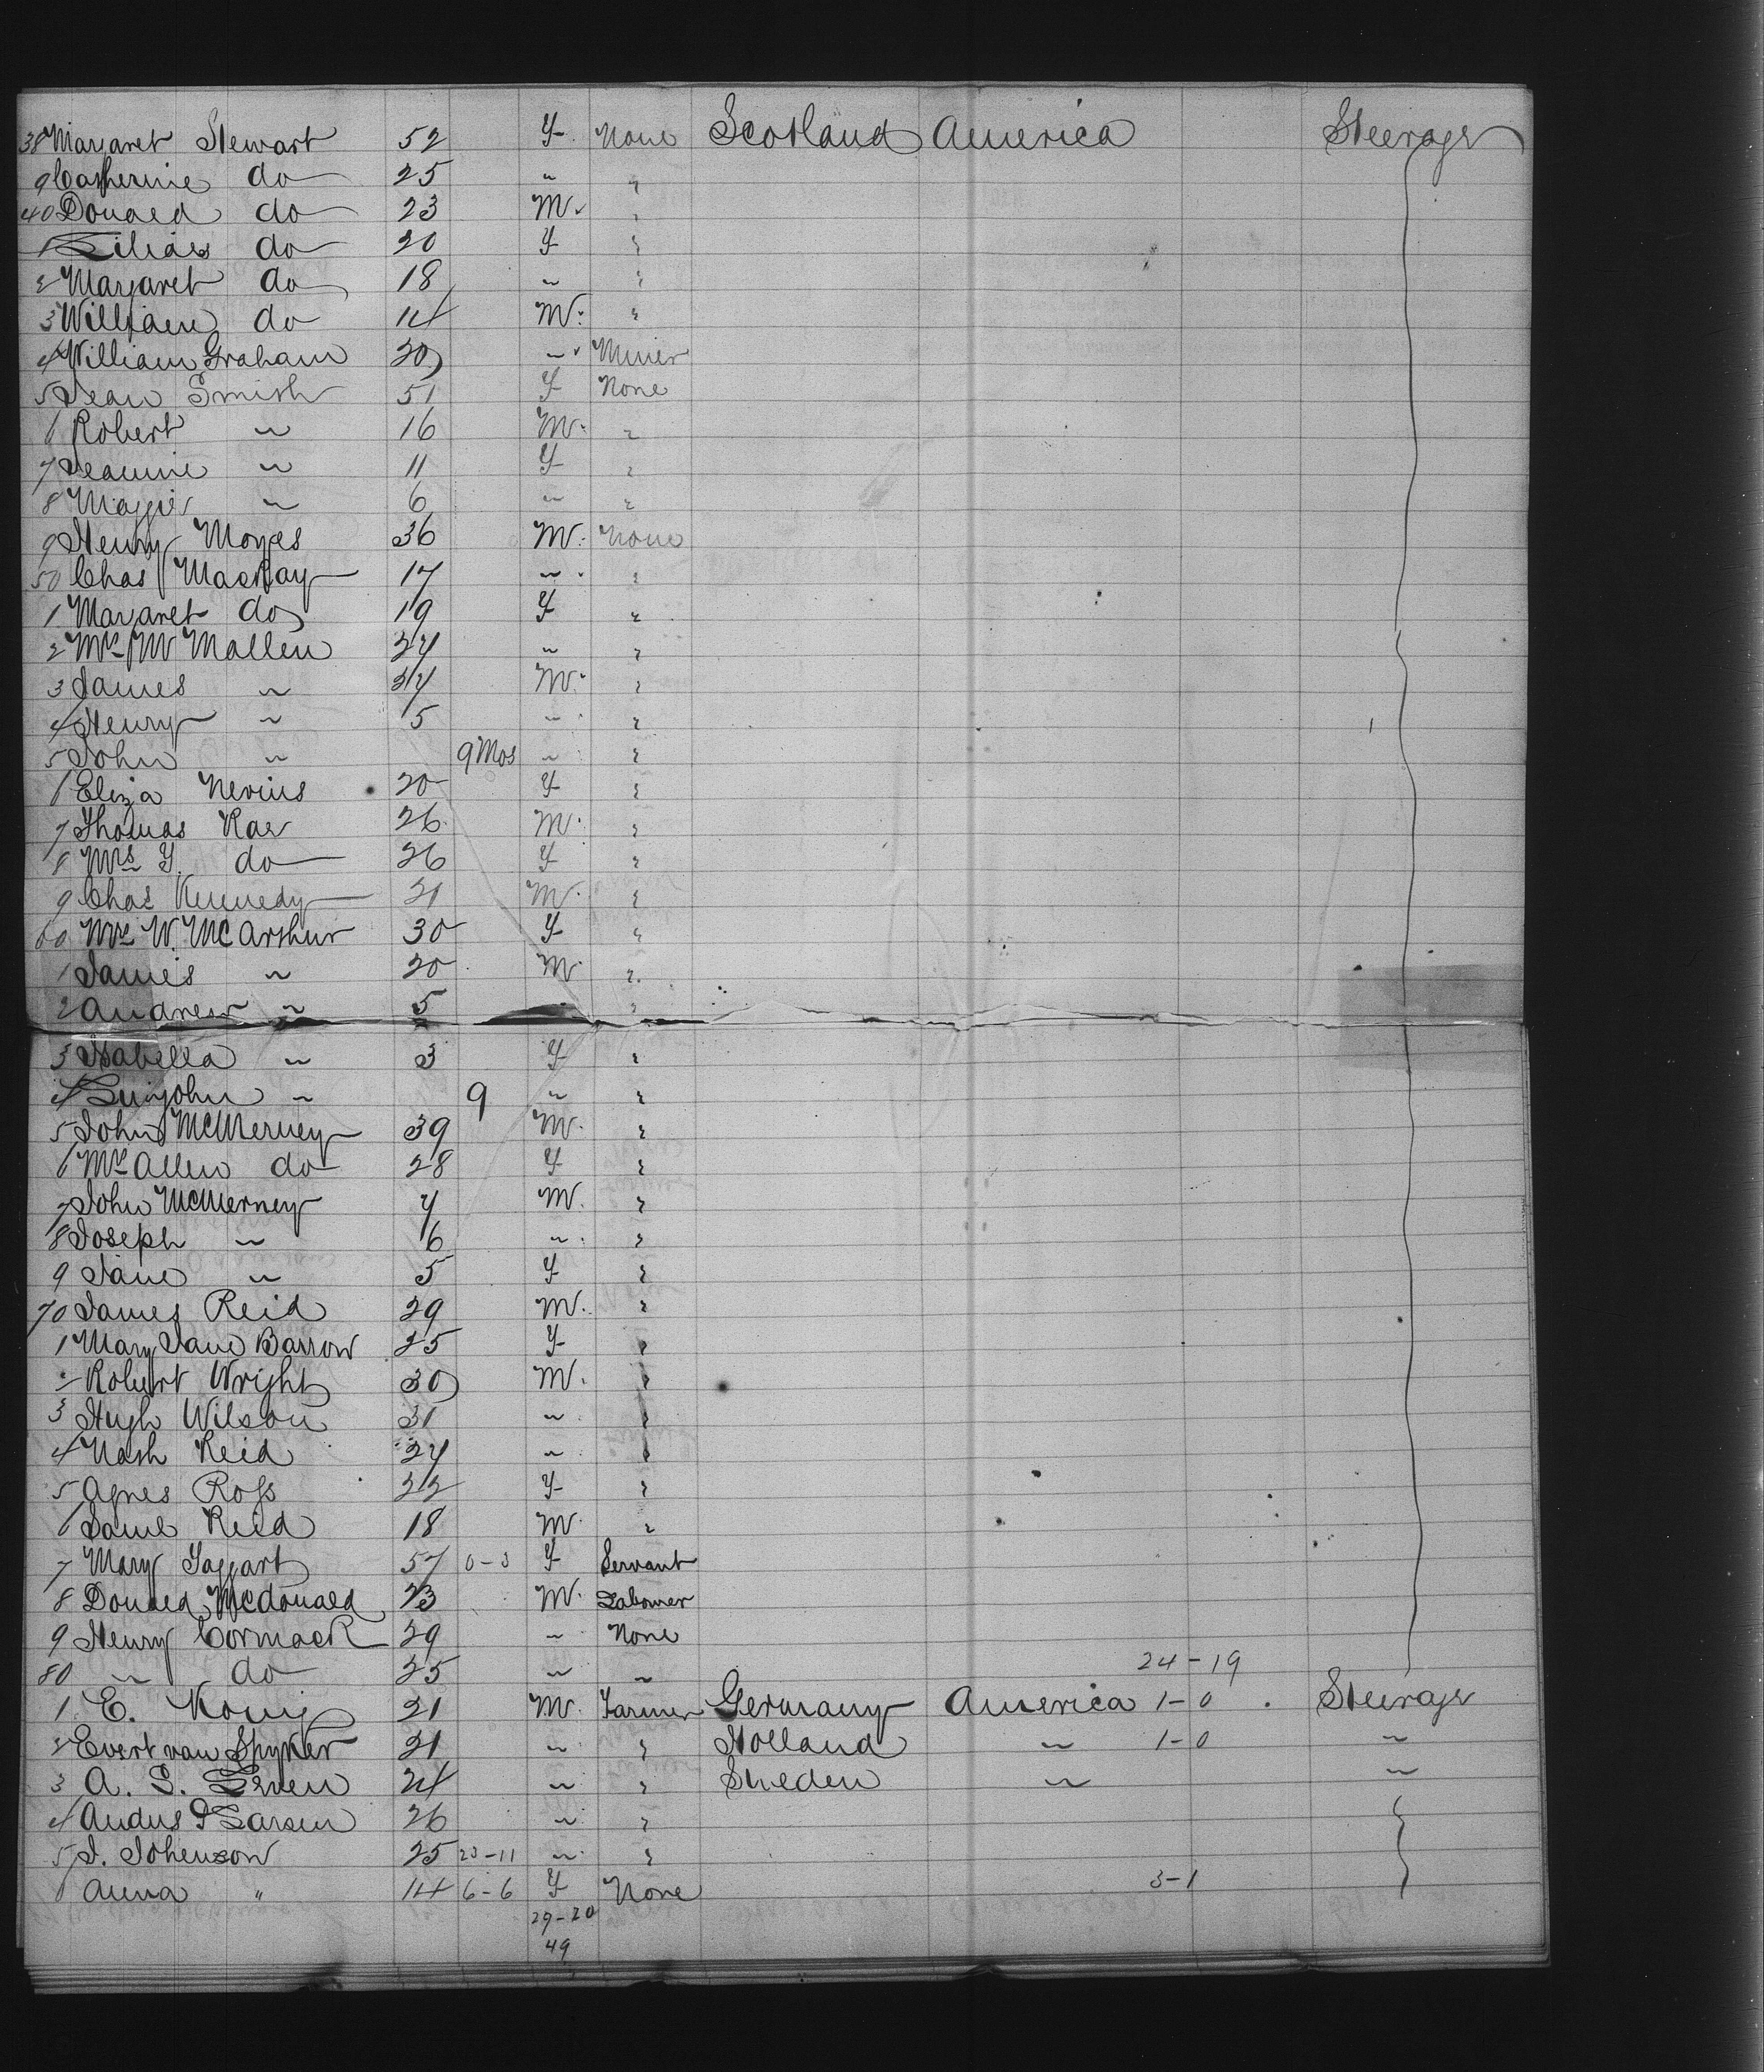 38 Margaret Stewart 52 F. None Scotland America Steerage
9 Catherine do 25 " "
40 Donald do 23 M. "
1 Lilias do 20 F "
2 Margaret do 18 " "
3 William do 14 M. "
4 William Graham 20 " Miner
5 Jean Smith 51 F None
6 Robert " 16 M. "
7 Jeannie " 11 F "
8 Maggie " 6 " "
9 Henry Moyes 36 M. None
50 Chas MacKay 17 " "
1 Margaret do 19 F "
2 Mrs Mc Mallen "
3 James " M. "
4 Henry " 5 " "
5 John " 9 Mos " "
6 Eliza Nevins 20 F "
7 Thomas Rae 26 M. "
8 Mrs Y. do 26 F "
9 Chas Kennedy 21 M. "
60 Mrs W. McArthur 30 F "
1 James " 20 M "
2 Andrew " 5 "
3 Isabella " 3 F "
4 " 9 " "
5 John 39 M. "
6 Mrs Allen do 28 F "
7 John McMerney M. "
8 Joseph " 6 " "
9 Jane " 5 F "
70 James Reid 29 M. "
1 Mary Jane Barrow 25 F "
2 Robert Wright 30 M. "
3 Hugh Wilson 31 " "
4 Reid " "
5 Agnes Ross 22 F "
6 Reid 18 M. "
7 Mary Taggart 57 0-3 F Servant
8 Donald Mcdonald 23 M. Labourer
9 Henry Cormack 29 " None
80 " do 25 " " 24-19
1 E. Konig 21 M. Farmer Germany America 1-0 Steerage
2 Evert van Spyker 21 " " Holland " 1-0 "
3 A. S. 24 " " Sweden " "
4 Larsen 26 " "
5 J. Johenson 25 23-11 " "
6 Anna " 14 6-6 F None 3-1
29-20
49